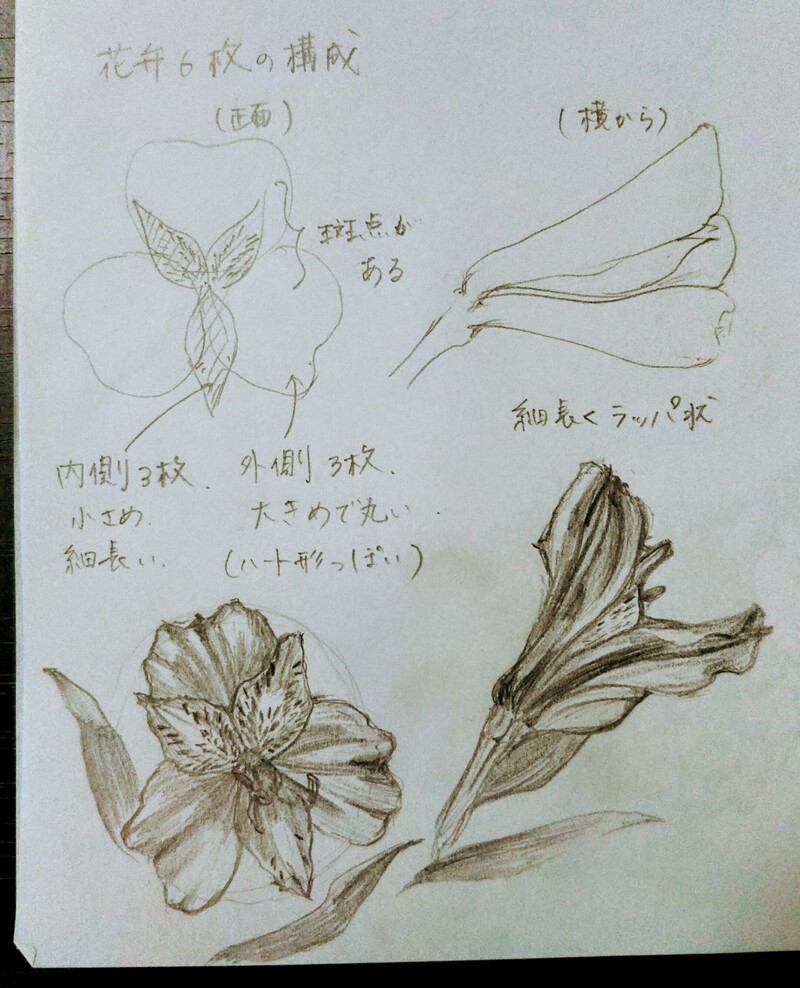 花弁6枚の構成
(正面)
(横から)
斑点が
ある
細長くラッパ状
内側3枚.
小さめ.
細長い.
外側3枚.
大きめで丸い.
(ハート形っぽい)